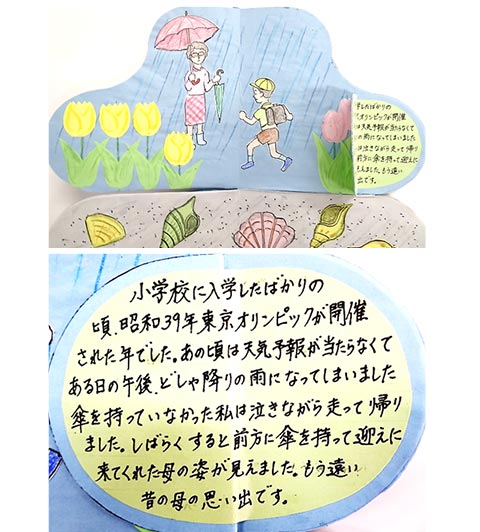 したばかりの
オリンピックが開催
は天気予報が当たらなくて
の雨になってしまいました
は泣きながら走って帰り
前方に傘を持って迎えに
えました。もう遠い
出です。
小学校に入学したばかりの
頃、昭和39年東京オリンピックが開催
された年でした。あの頃は天気予報が当たらなくて
ある日の午後、どしゃ降りの雨になってしまいました
傘を持っていなかった私は泣きながら走って帰り
ました。しばらくすると前方に傘を持って迎えに
来てくれた母の姿が見えました。もう遠い
昔の母の思い出です。